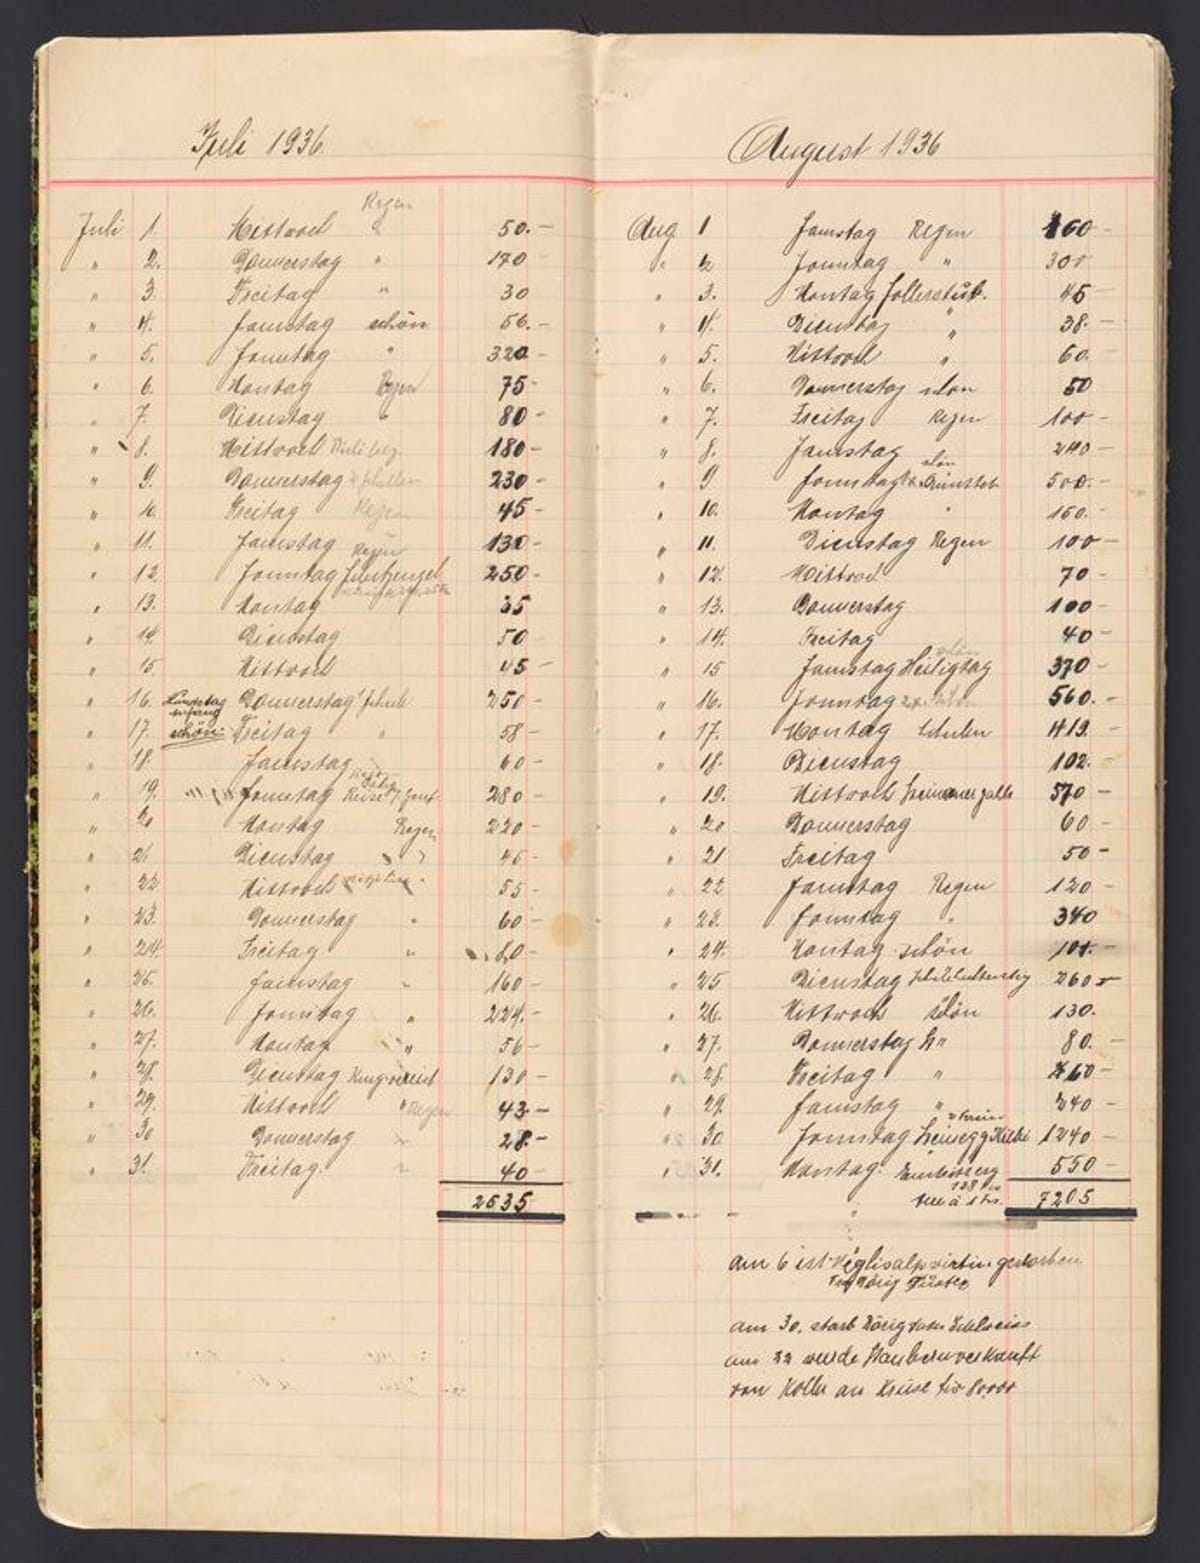 Juli 1936
Regen
Juli 1. Mittwoch " 50.-
" 2. Donnerstag " 170 -
" 3. Freitag " 30
" 4. Samstag schön 56.-
" 5. Sonntag " 320 -
" 6. Montag Regen 75 -
" 7. Dienstag " 80 -
" 8. Mittwoch 180 -
" 9. Donnerstag 230 -
" 10. Freitag Regen 45 -
" 11. Samstag Regen 130 -
" 12. Sonntag 250 -
" 13. Montag 35
" 14. Dienstag 50
" 15 Mittwoch 45 -
" 16. Donnerstag 250 -
" 17. schön Freitag " 58 -
" 18. Samstag 60 -
" 19. Sonntag 280 -
" 20 Montag Regen 220 -
" 21 Dienstag 45 -
" 22 Mittwoch 55 -
" 23. Donnerstag " 60 -
" 24. Freitag " 80 -
" 25. Samstag " 160 -
" 26. Sonntag " 224.-
" 27. Montag " 56 -
" 28. Dienstag 130 -
" 29. Mittwoch " Regen 43.-
" 30 Donnerstag 28.-
" 31. Freitag. 40 -
2635
August 1936
Aug 1 Samstag Regen 160 -
" 2 Sonntag " 300
" 3. Montag 45 -
" 4. Dienstag " 38. -
" 5. Mittwoch " 60. -
" 6. Donnerstag schön 50
" 7. Freitag Regen 100 -
" 8. Samstag 240 -
schön
" 9 Sonntag 500. -
" 10. Montag " 160. -
" 11. Dienstag Regen 100 -
" 12. Mittwoch 70 -
" 13. Donnerstag 100 -
" 14. Freitag 40 -
" 15 Samstag Heiligtag 370 -
" 16. Sonntag 560. -
" 17. Montag Schulen 419. -
" 18. Dienstag 102. -
" 19. Mittwoch 570 -
" 20 Donnerstag 60 -
" 21 Freitag 50 -
" 22 Samstag Regen 120 -
" 23. Sonntag " 340
" 24. Montag schön
" 25 Dienstag 260
" 26. Mittwoch schön 130.
" 27. Donnerstag " 80. -
" 28. Freitag "
" 29. Samstag " 240 -
" 30. Sonntag 1240 -
" 31. Montag. 550 -
7205
am 6 ist gestorben
am 30. starb Dörig
am 22 wurde Staubern verkauft
von Koller an